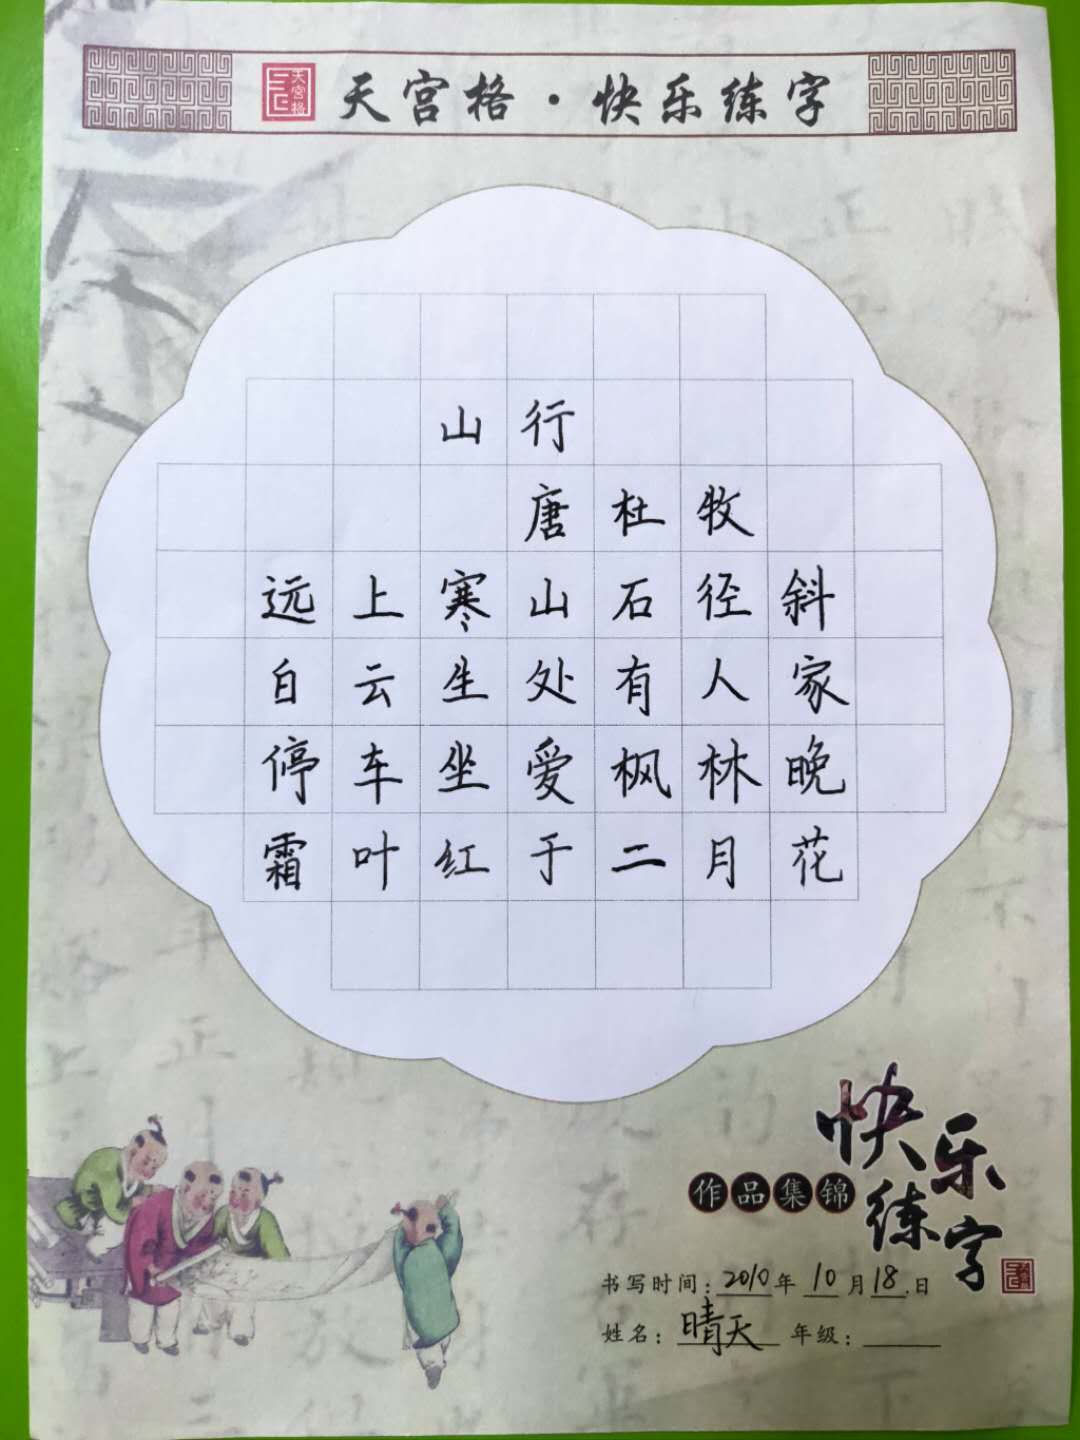 天宫格
天宫格·快乐练字
山行
唐杜牧
远上寒山石径斜
白云生处有人家
停车坐爱枫林晚
霜叶红于二月花
快乐练字
作品集锦
书写时间:2010年10月18日
姓名:晴天 年级: